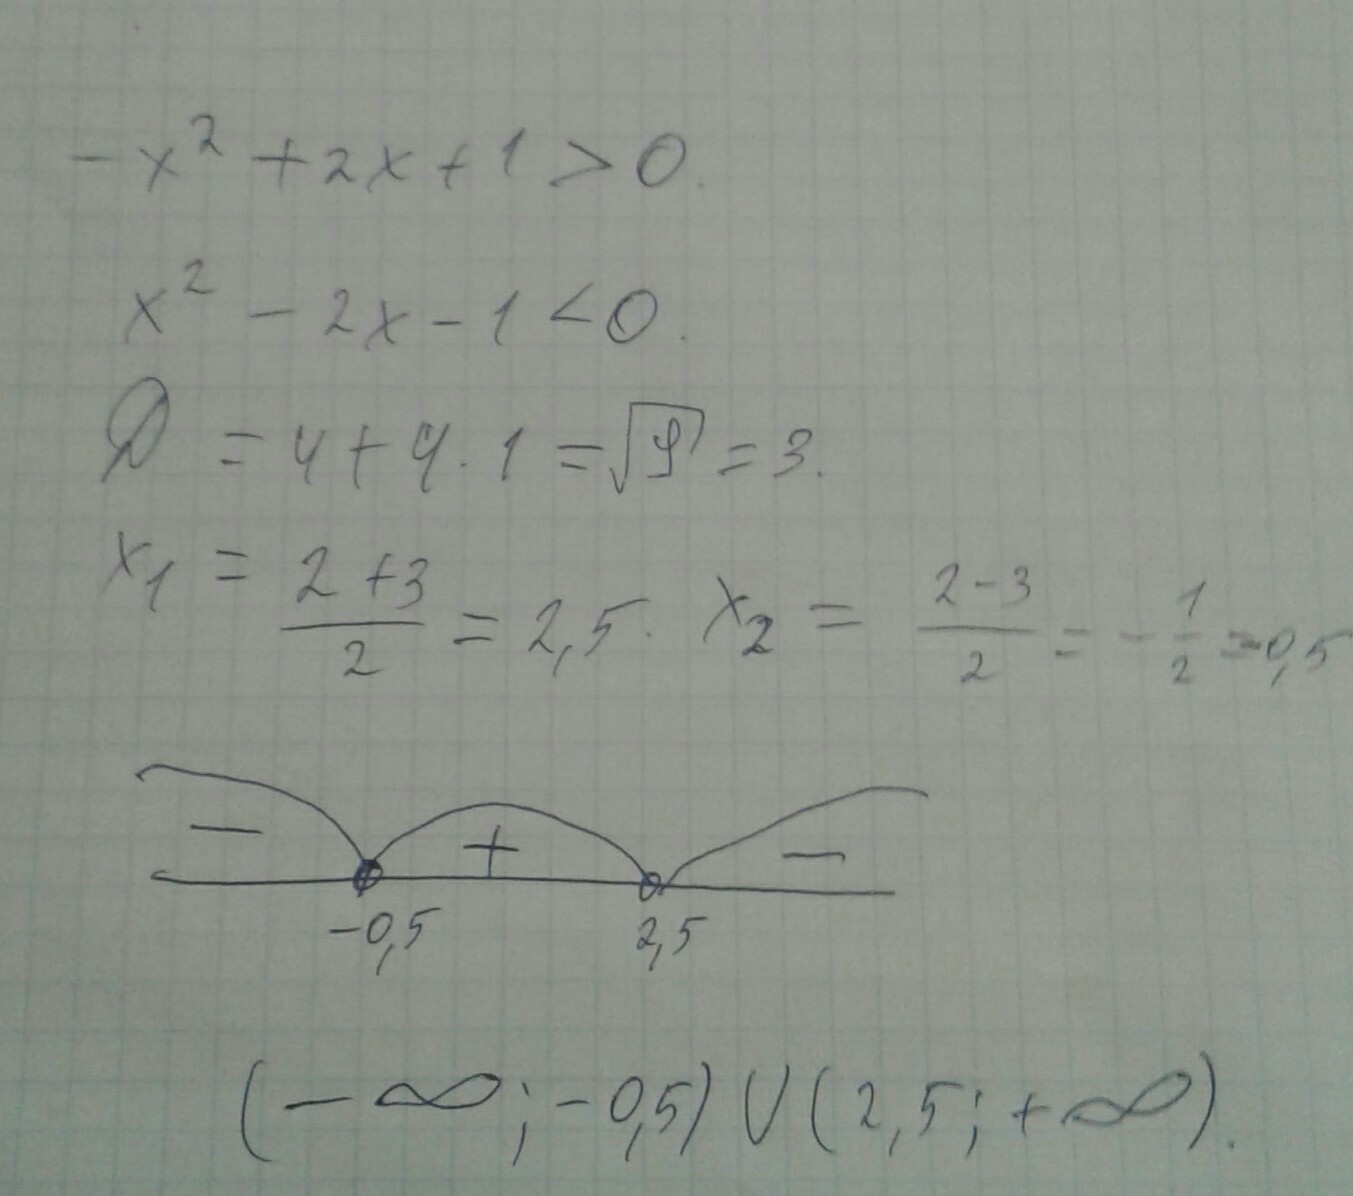 -x² + 2x + 1 > 0.
x² - 2x - 1 < 0.
D = 4 + 4 · 1 = √9 = 3.
x₁ = (2 + 3)/2 = 2,5. x₂ = (2 - 3)/2 = -1/2 = -0,5
- + -
-0,5 2,5
(-∞; -0,5) ∪ (2,5; +∞).